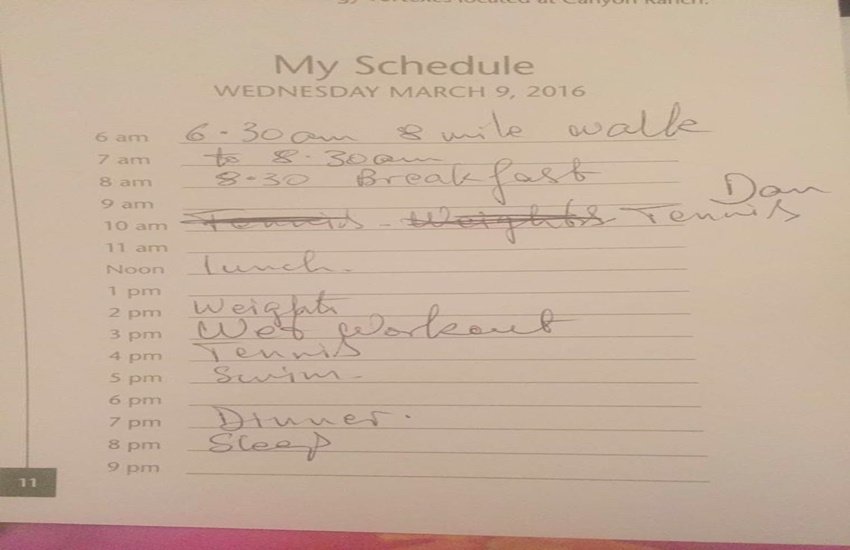 located at Canyon Ranch.
My Schedule
WEDNESDAY MARCH 9, 2016
6 am 6-30am 8 mile walk
7 am to 8.30am
8 am 8-30 Breakfast
9 am Dan
10 am Tennis - Weights Tennis
11 am
Noon lunch.
1 pm
2 pm Weights
3 pm Wet Workout
4 pm Tennis
5 pm Swim -
6 pm
7 pm Dinner.
8 pm Sleep
9 pm
11